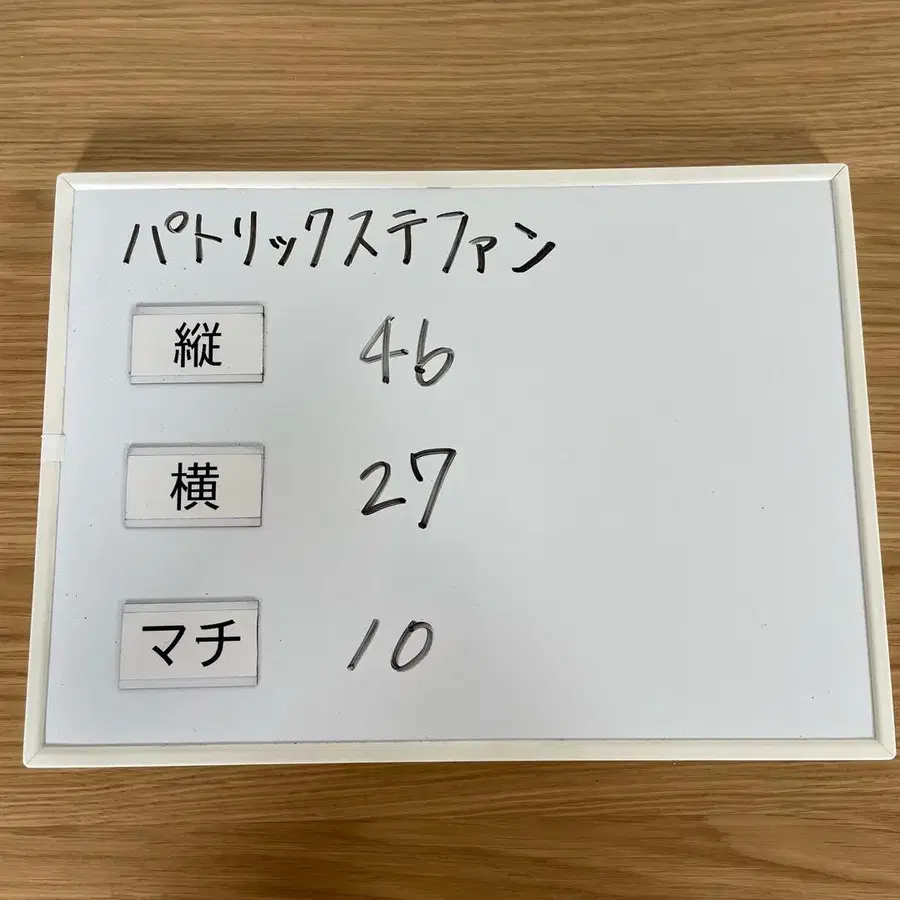 パトリックステファン
縦 46
横 27
マチ 10